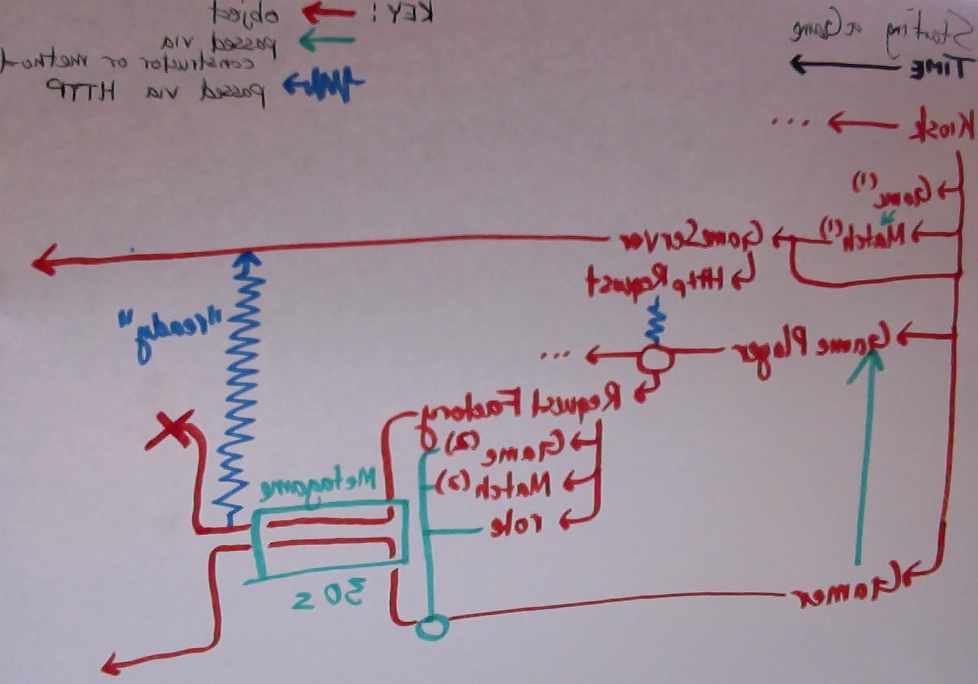 Starting a Game
TIME
KEY:
object
passed via
constructor or method
passed via HTTP
Kiosk ...
Game (1)
Match (1)
GameServer
HttpRequest
"ready"
Game Player ...
Request Factory
Game (2)
Match (2)
role
Metagame
30 s
Gamer